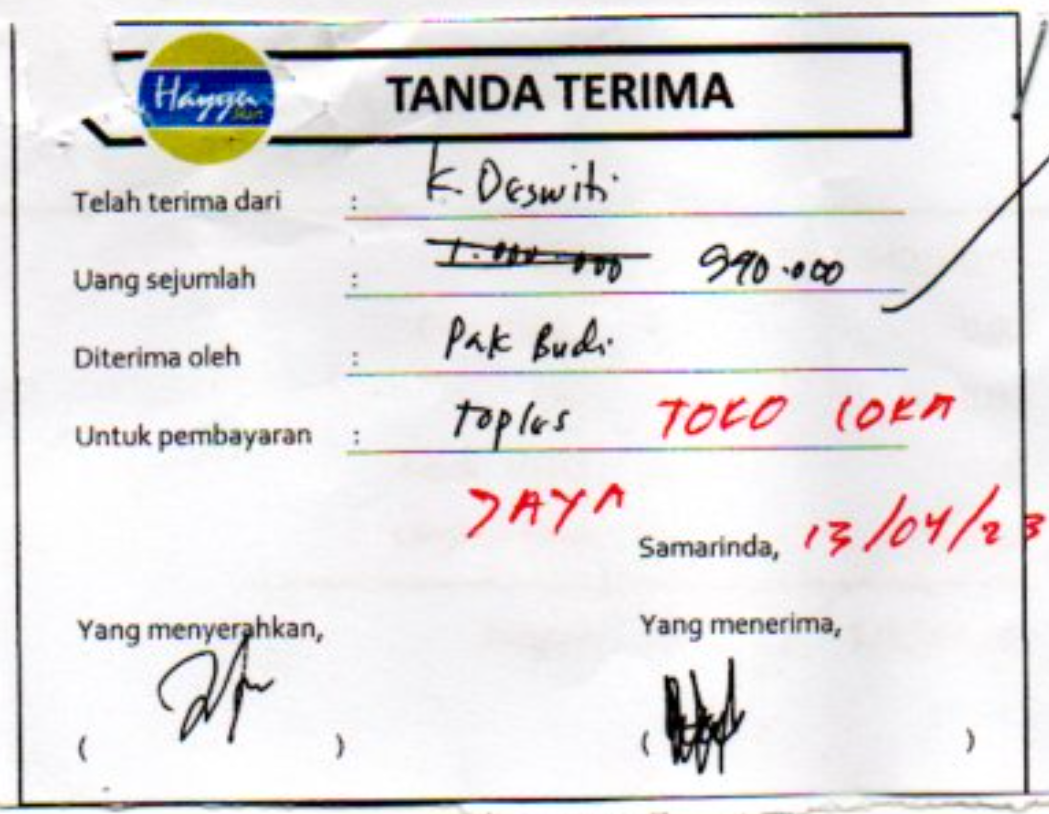 Hayyu
TANDA TERIMA
Telah terima dari : K. Deswiti
Uang sejumlah : 1.000.000 990.000
Diterima oleh : Pak Budi
Untuk pembayaran : toples TOKO LOKA
JAYA
Samarinda, 13/04/23
Yang menyerahkan, Yang menerima,
( ) ( )